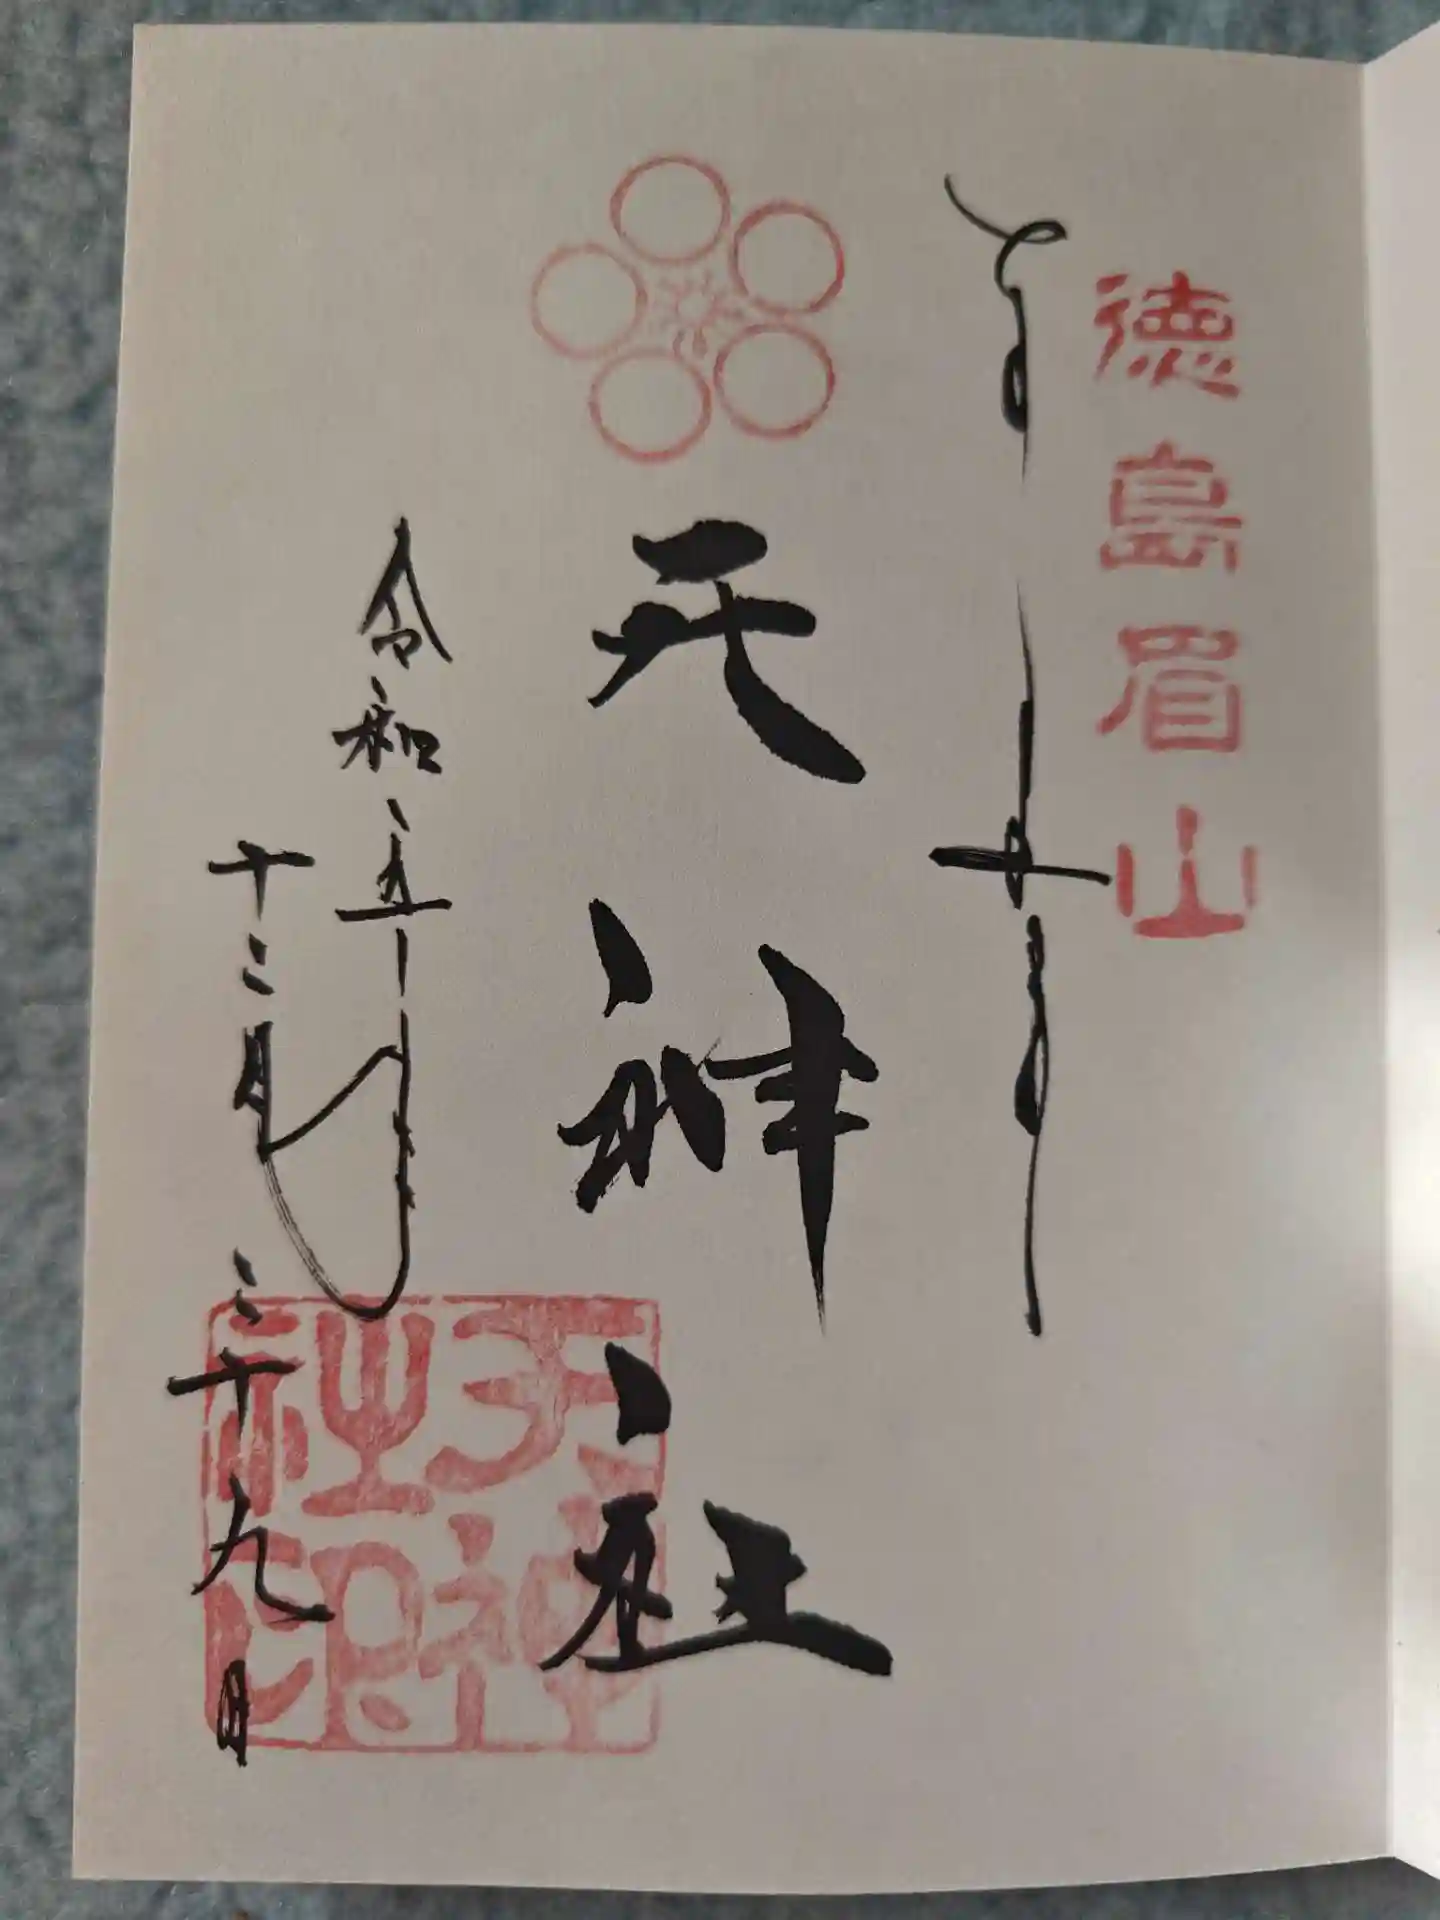 徳島眉山
奉拝
天神社
令和五年
十二月二十九日
天神社印